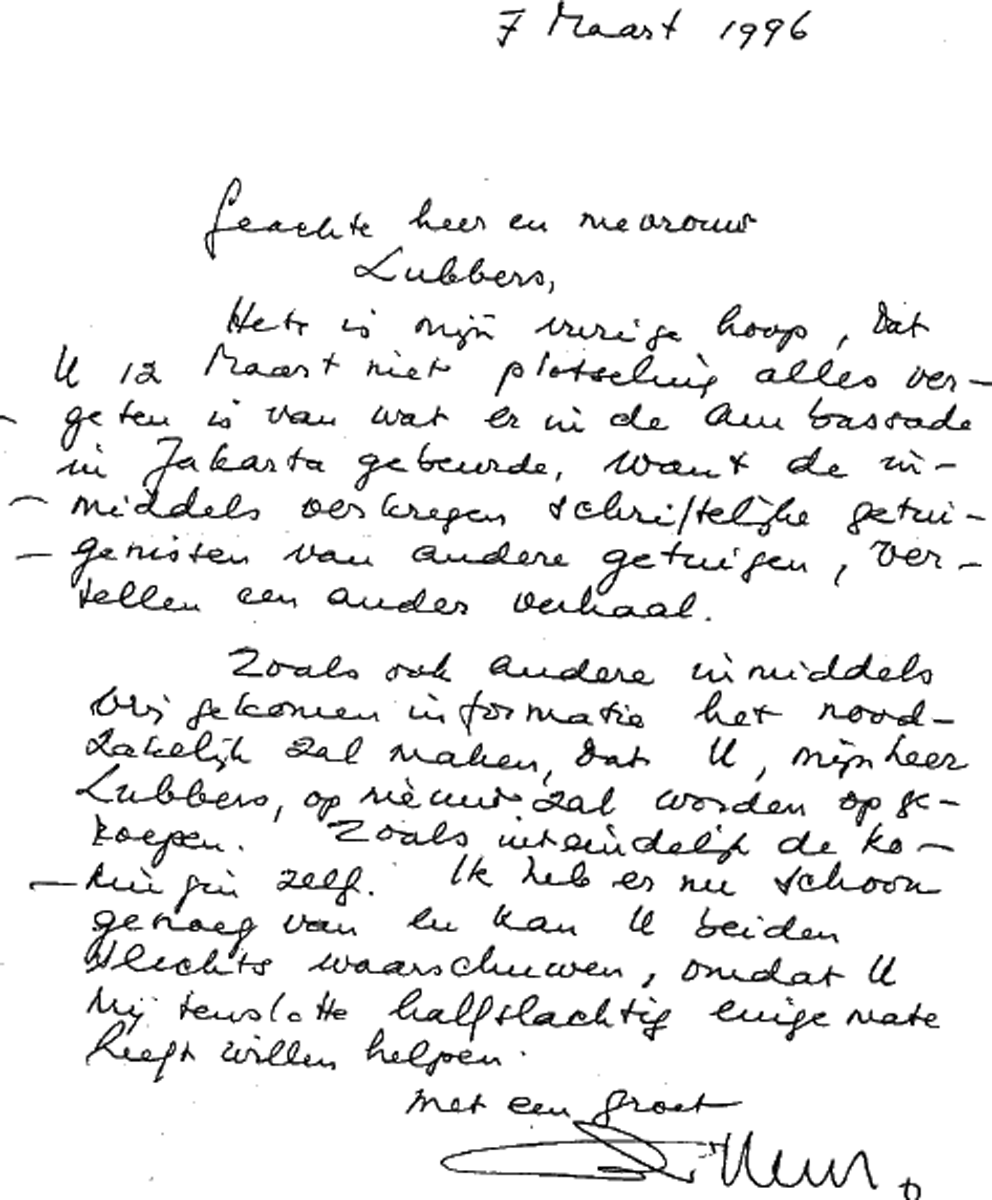 7 Maart 1996
Geachte heer en mevrouw
Lubbers,
Het is mijn vurige hoop, dat
U 12 Maart niet plotseling alles ver-
geten is van wat er in de Ambassade
in Jakarta gebeurde, want de in-
middels verkregen schriftelijke getui-
genissen van andere getuigen, ver-
tellen een ander verhaal.
Zoals ook andere inmiddels
vrijgekomen informatie het nood-
zakelijk zal maken, dat U, mijnheer
Lubbers, opnieuw zal worden opge-
roepen. Zoals uiteindelijk de ko-
ningin zelf. Ik heb er nu schoon
genoeg van en kan U beiden
slechts waarschuwen, omdat U
mij tenslotte halfslachtig enigemate
heeft willen helpen.
met een groet